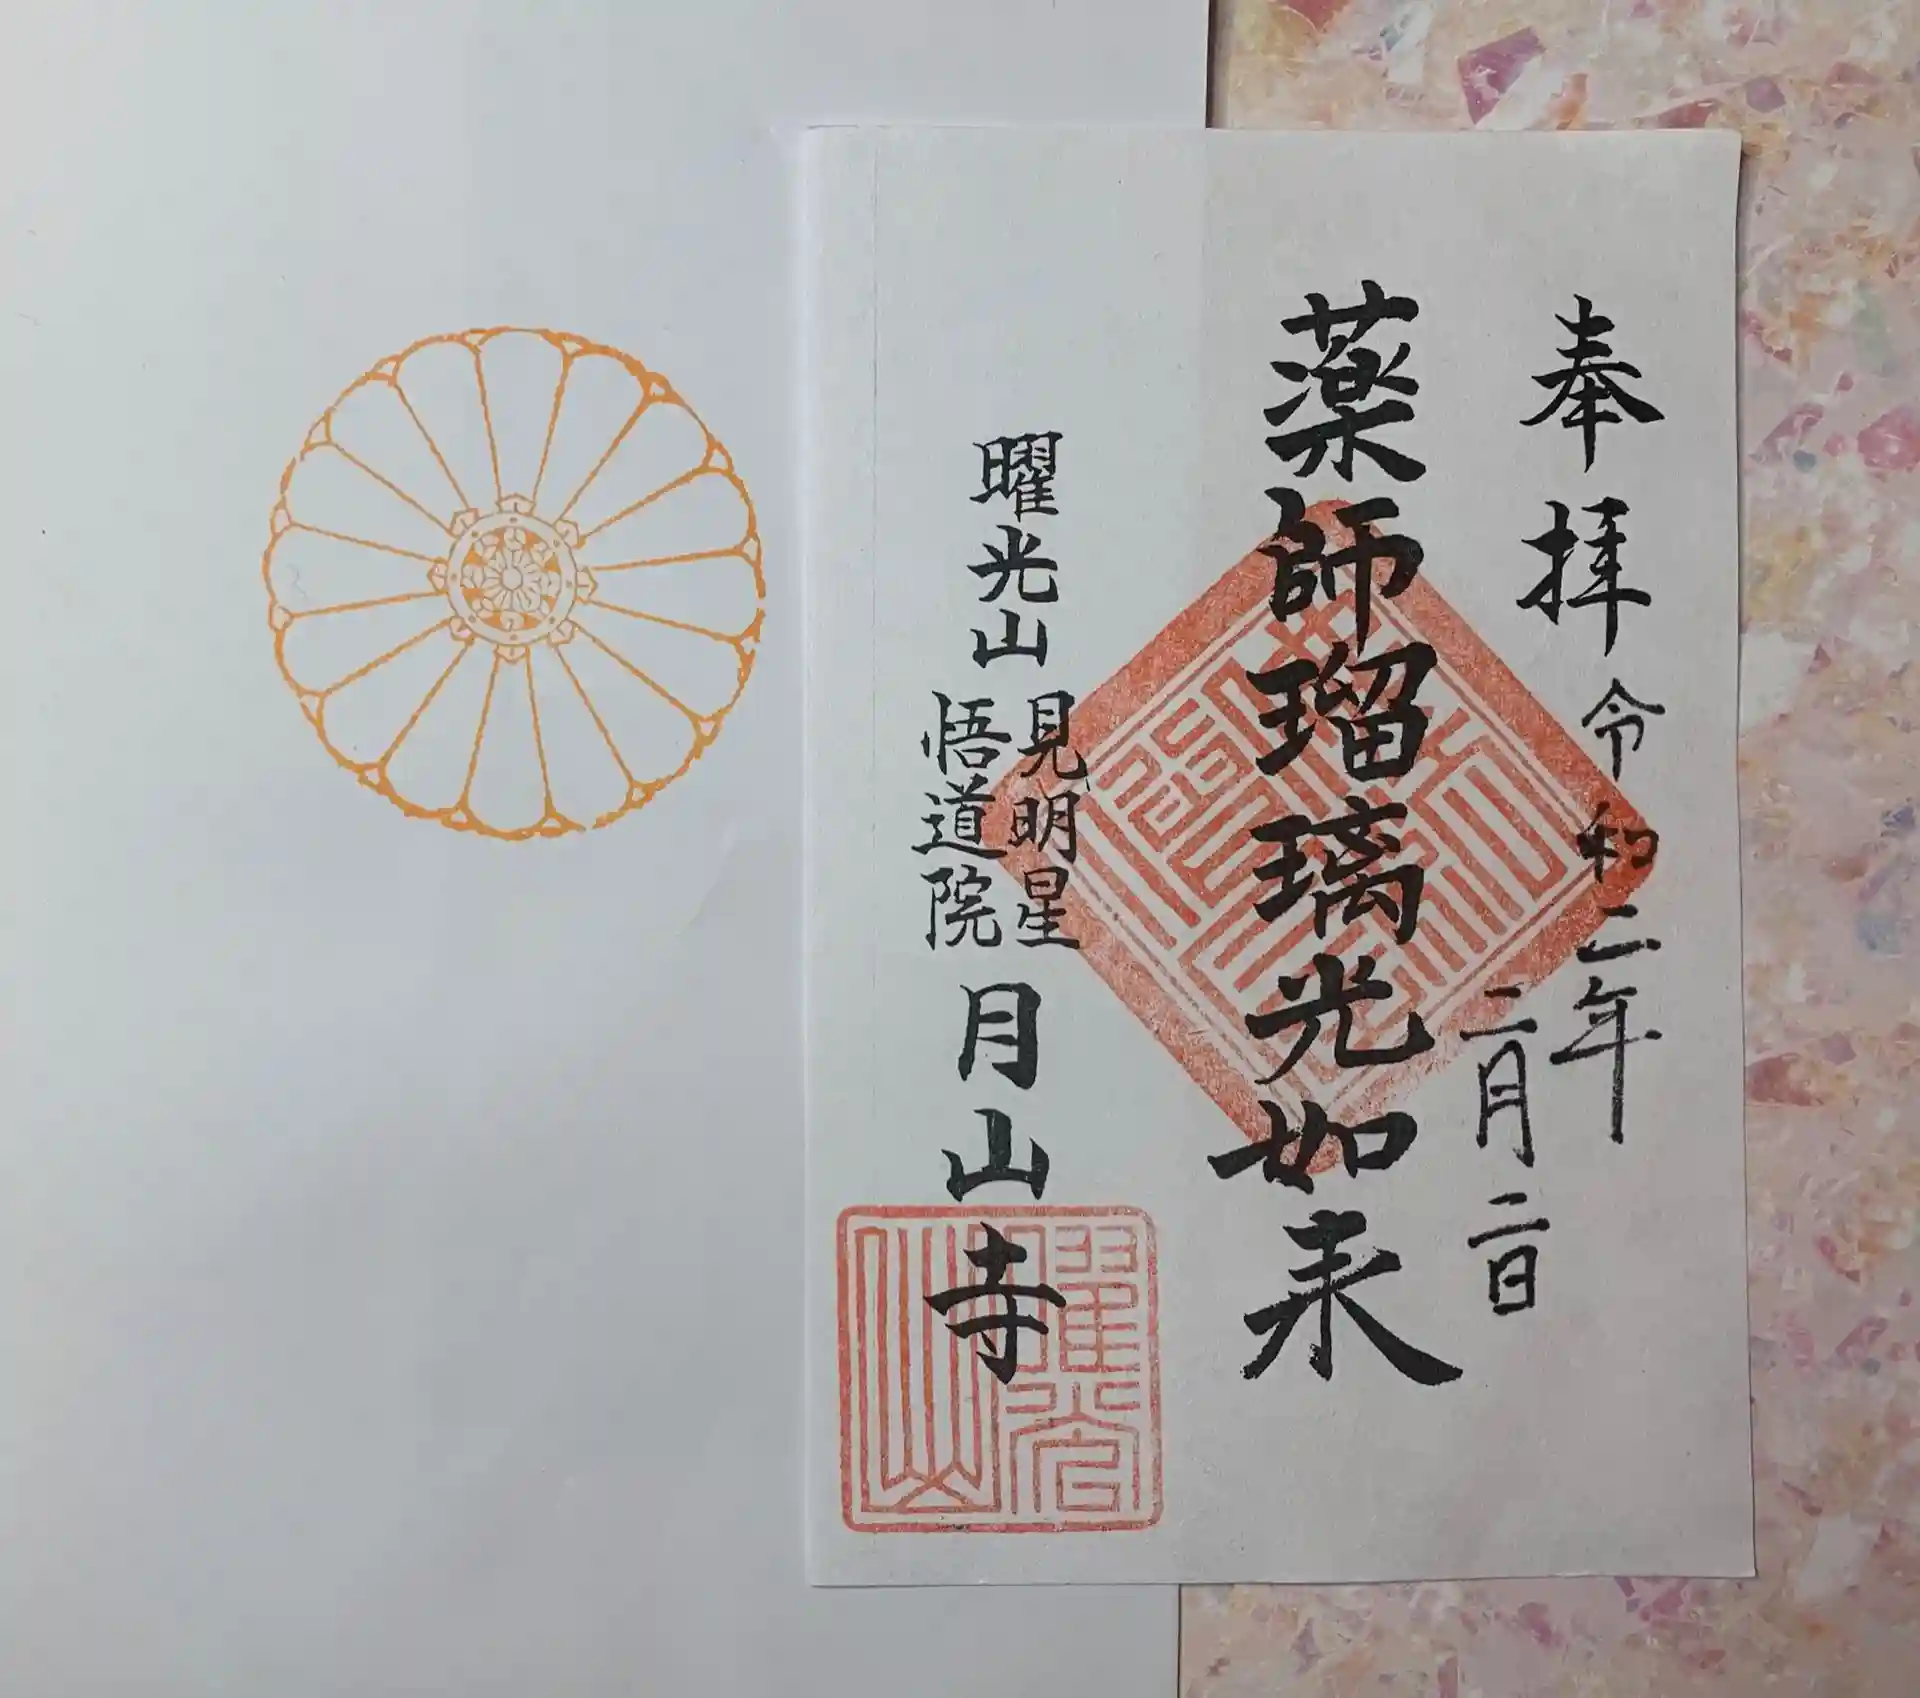 奉拝
令和二年
二月二日
薬師瑠璃光如来
曜光山
見明星
悟道院
月山寺
曜光山